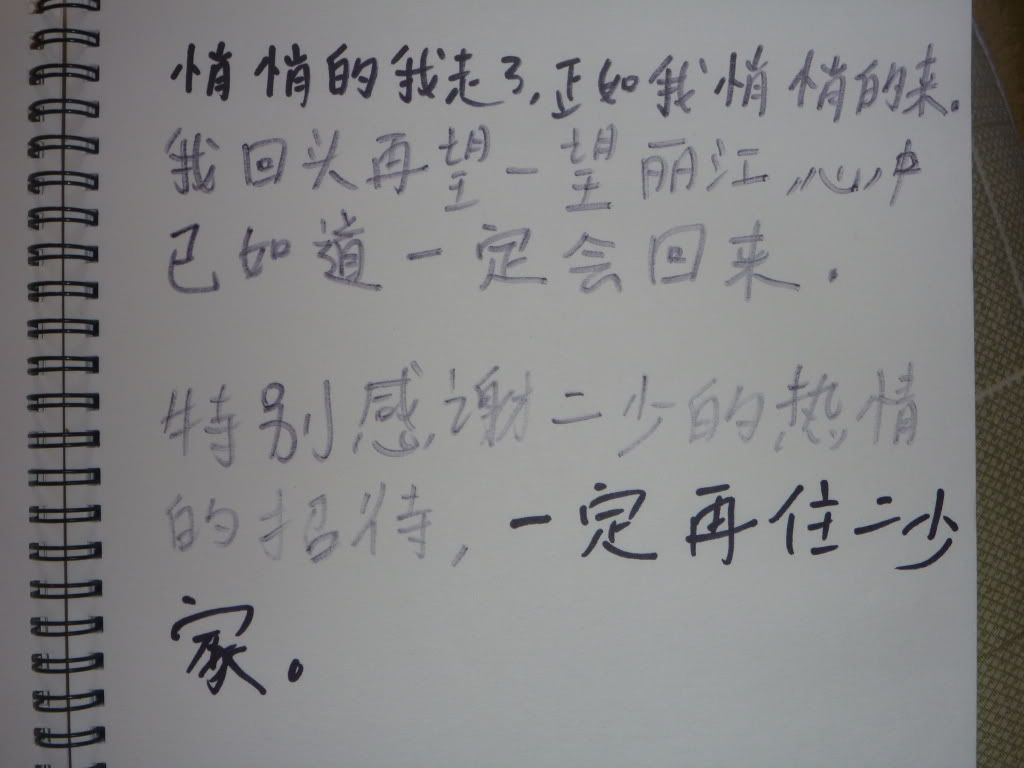 悄悄的我走了,正如我悄悄的来.
我回头再望一望丽江,心中
已如道一定会回来.
特别感谢二少的热情
的招待,一定再住二少
家。